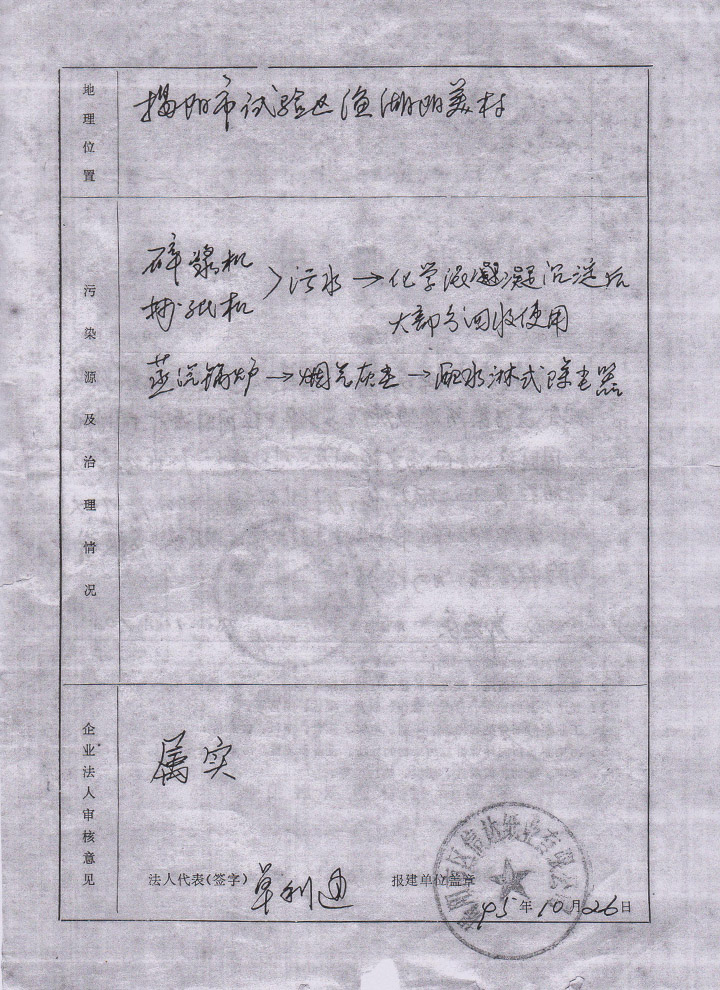 地理位置
揭阳市试验区渔湖阳美村
污染源及治理情况
碎浆机
抄纸机
>污水→化学混凝凝沉淀后
大部分回收使用
蒸汽锅炉→烟气灰尘→ 水淋式除尘器
企业法人审核意见
属实
法人代表(签字)
利
报建单位盖章
区信达纸业有限公司
95年10月26日